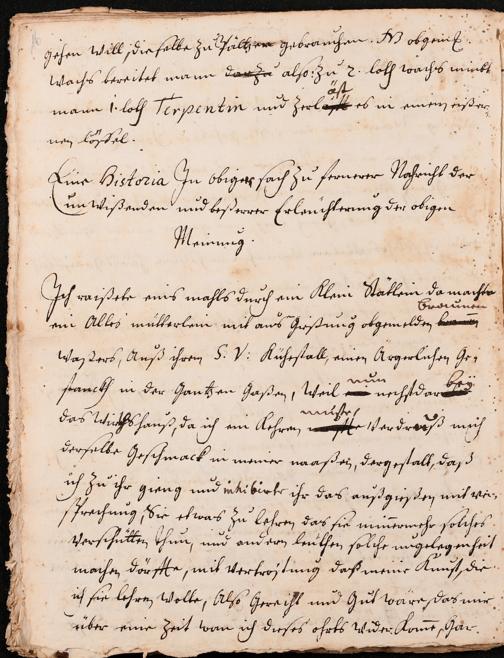 gehen will, die selbe zu fältzen gebrauchen. NB obgemelt
wachs bereitet mann darzu also: Zu 2. loth wachs nimbt
mann 1. loth Terpentin und Zerläst es in einem eißer-
nen löffel.
Eine Historia In obiger sach zu fernerer Nachricht der
unwißenden und beßerer Erleuchterung der obigen
Meinung.
Ich raißete eins mahls durch ein Klein Stätlein da machte
ein Altes mütterlein mit auß Gießung obgemelden braunen
waßers, Auß ihrem S. V: Kühestall, einen Ärgerlichen Ge-
stanckh in der Gantzen Gaßen, Weil nun nechst darbey
das Würthshauß, da ich ein Kehren muste Verdroß mich
derselbe Geschmack in meiner naaßen, dergestalt, daß
ich zu ihr gieng und inhibierte ihr das außgießen mit ver-
sprechung, Sie etwas zu lehren das sie nimmermehr solches
verschütten thun, und andern leüthen solche ungelegenheit
machen dörffte, mit vertröstung daß meine Kunst, die
ich sie lehren wolte, Also Gerecht und Gut wäre, das wir
über eine Zeit wan ich dieses ohrts wider Komme, Gar